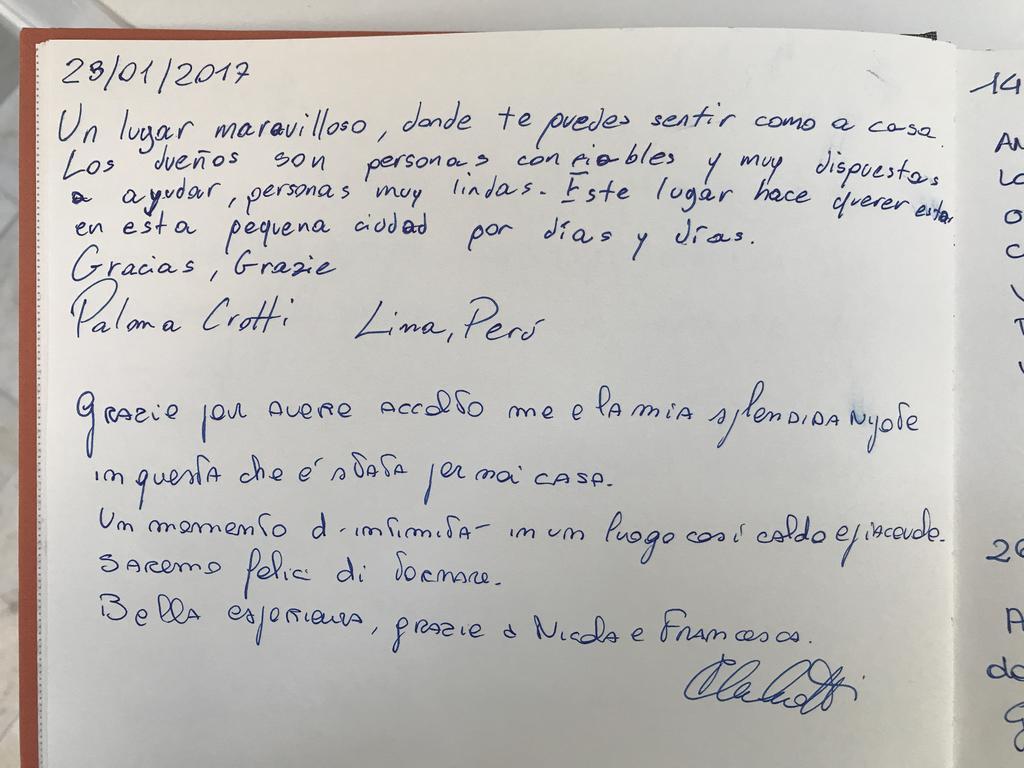 23/01/2017
Un lugar maravilloso, donde te puedes sentir como a casa.
Los dueños son personas confiables y muy dispuestas
a ayudar, personas muy lindas. Este lugar hace querer estar
en esta pequena ciudad por días y días.
Gracias, Grazie
Paloma Crotti Lima, Perú
Grazie per avere accolto me e la mia splendida nipote
in questa che é stata per noi casa.
Un momento d'intimità in un luogo così caldo e piacevole.
Saremo felici di tornare.
Bella esperienza, grazie a Nicola e Francesca.
14
AN
26